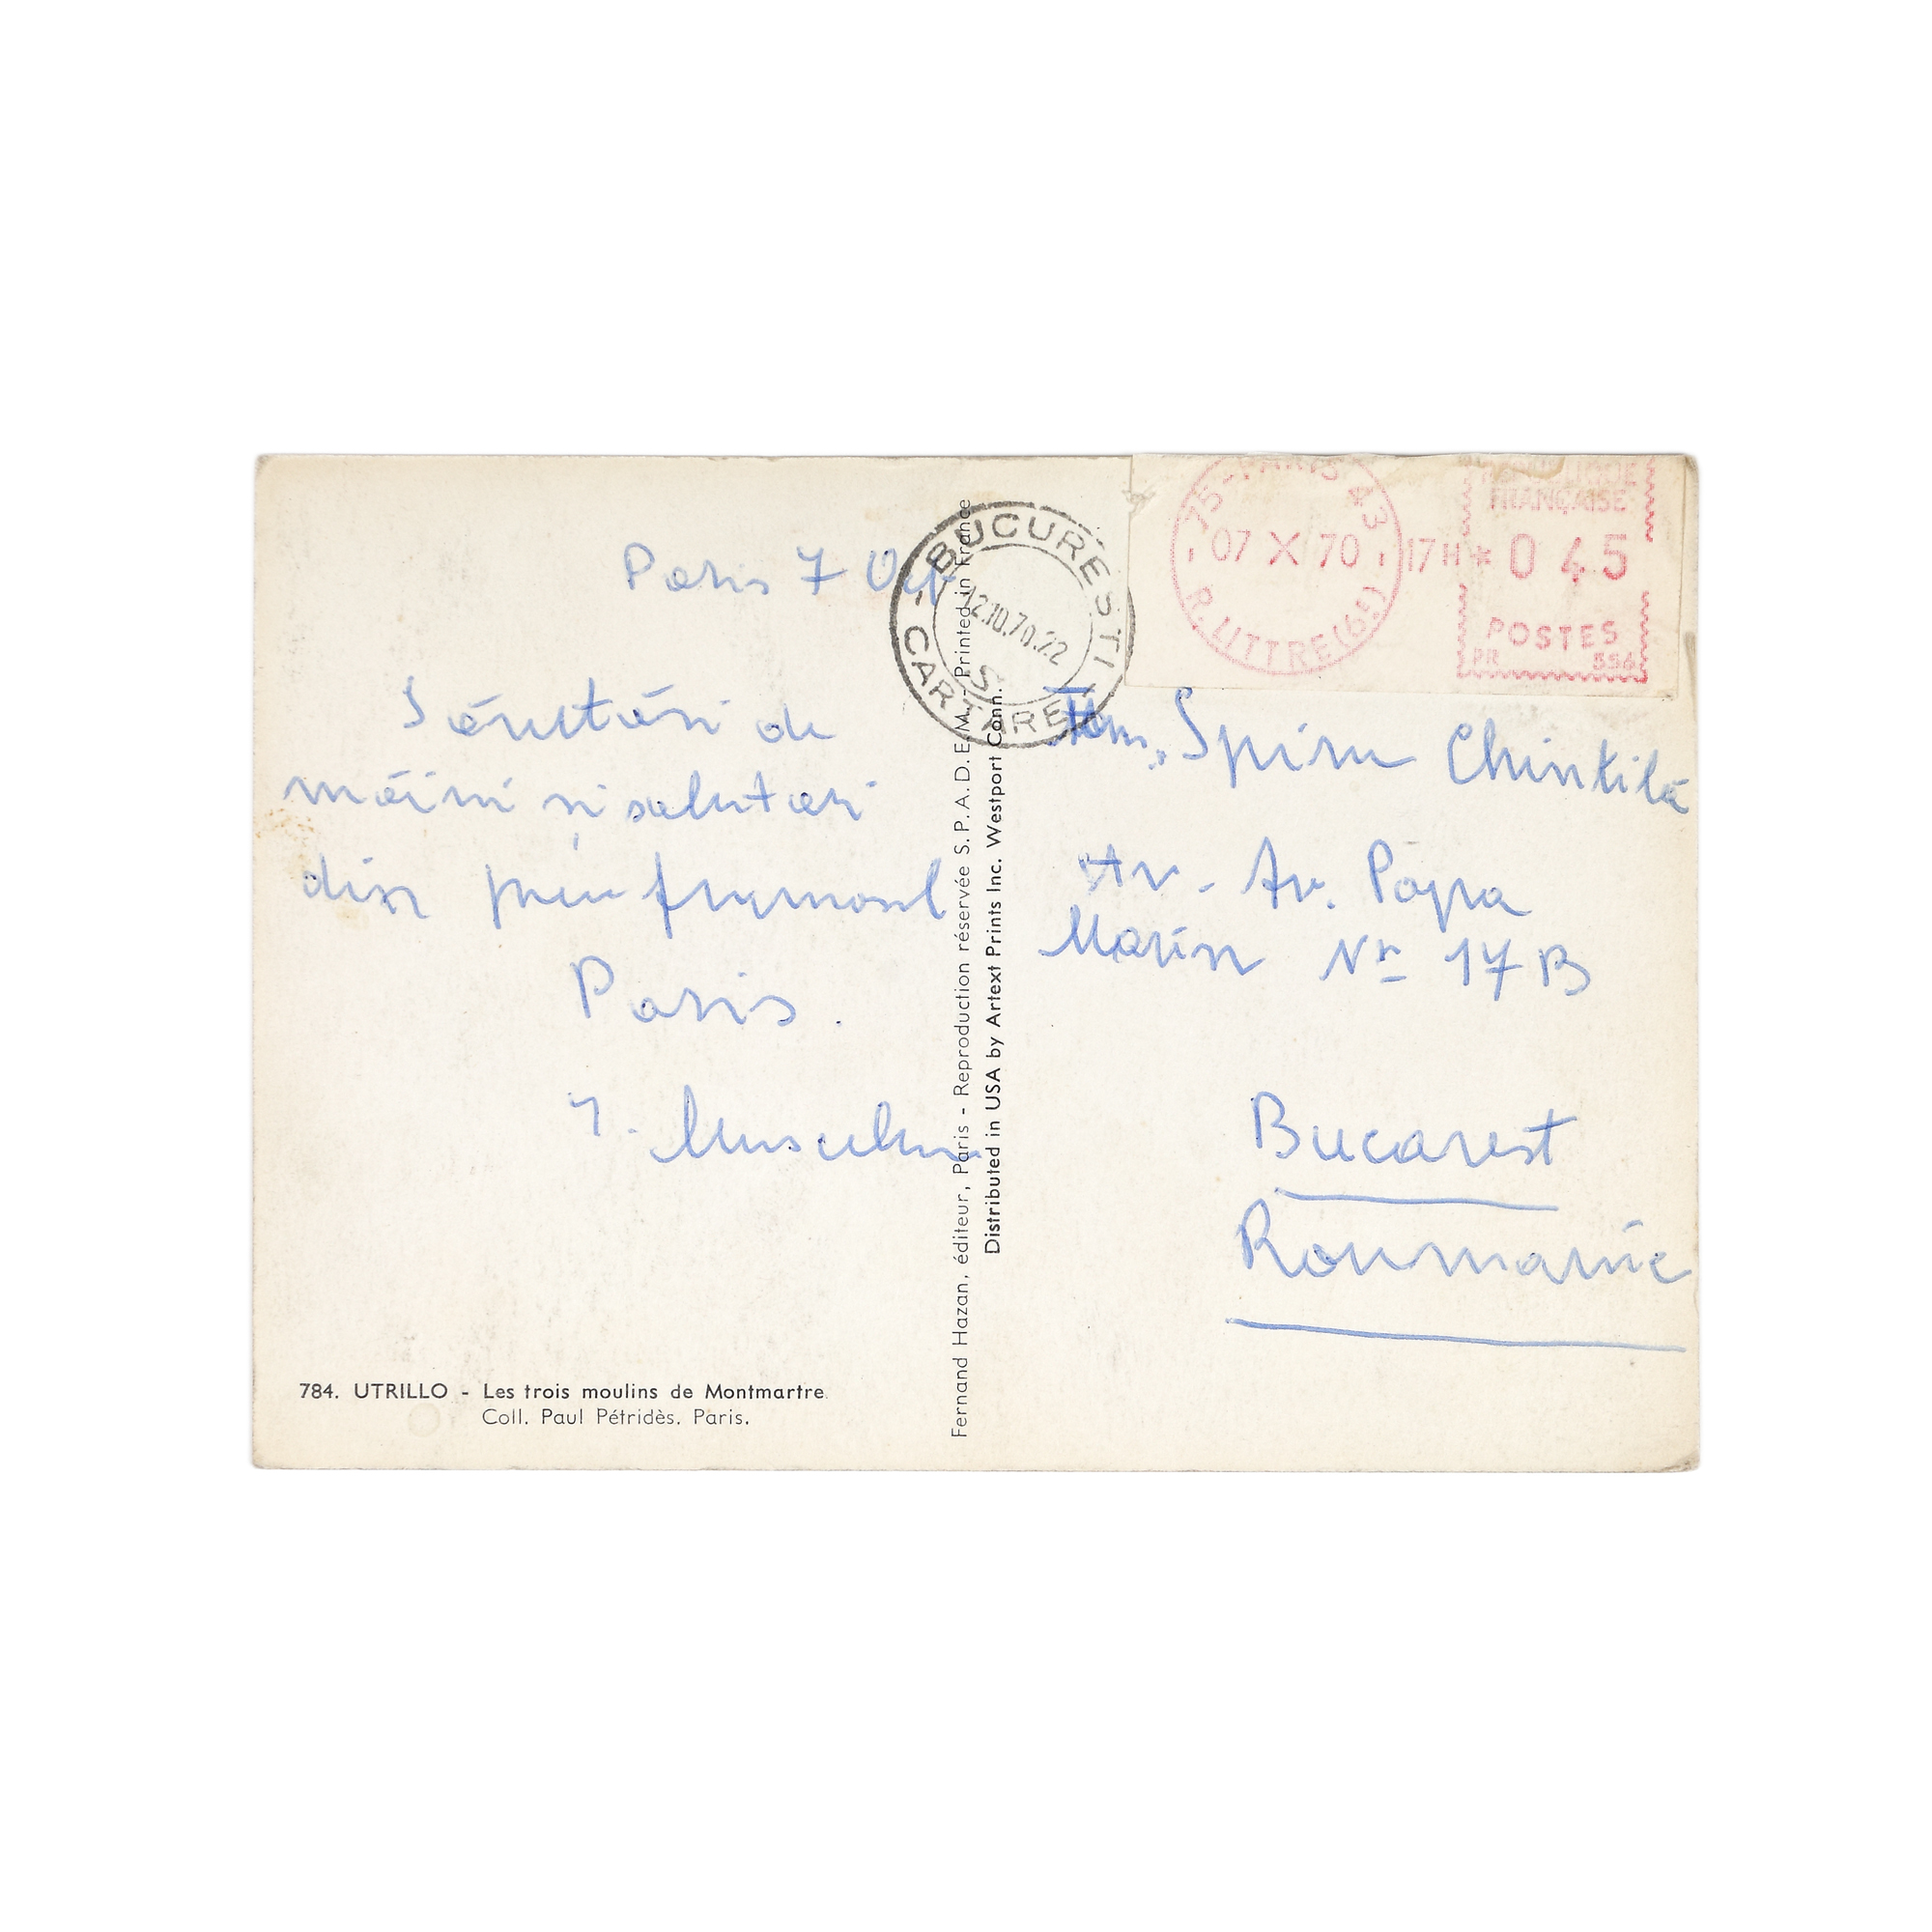 Paris 7 Oct
Sărutări de
mâini și salutări
din prea frumosul
Paris.
784. UTRILLO - Les trois moulins de Montmartre
Coll. Paul Pétridès. Paris.
Fernand Hazan, éditeur, Paris - Reproduction réservée S. P. A. D. E. M. - Printed in France
Distributed in USA by Artext Prints Inc. Westport Conn.
BUCURESTI
12.10.70.22
CARTARE
75 - PARIS 43
07 X 70
R. LITTRE (6E)
17H *
REPUBLIQUE
FRANÇAISE
0 45
POSTES
PR
Fam. Spiru Chintilă
Av. Av. Popa
Marin Nr 17 B
Bucarest
Roumanie